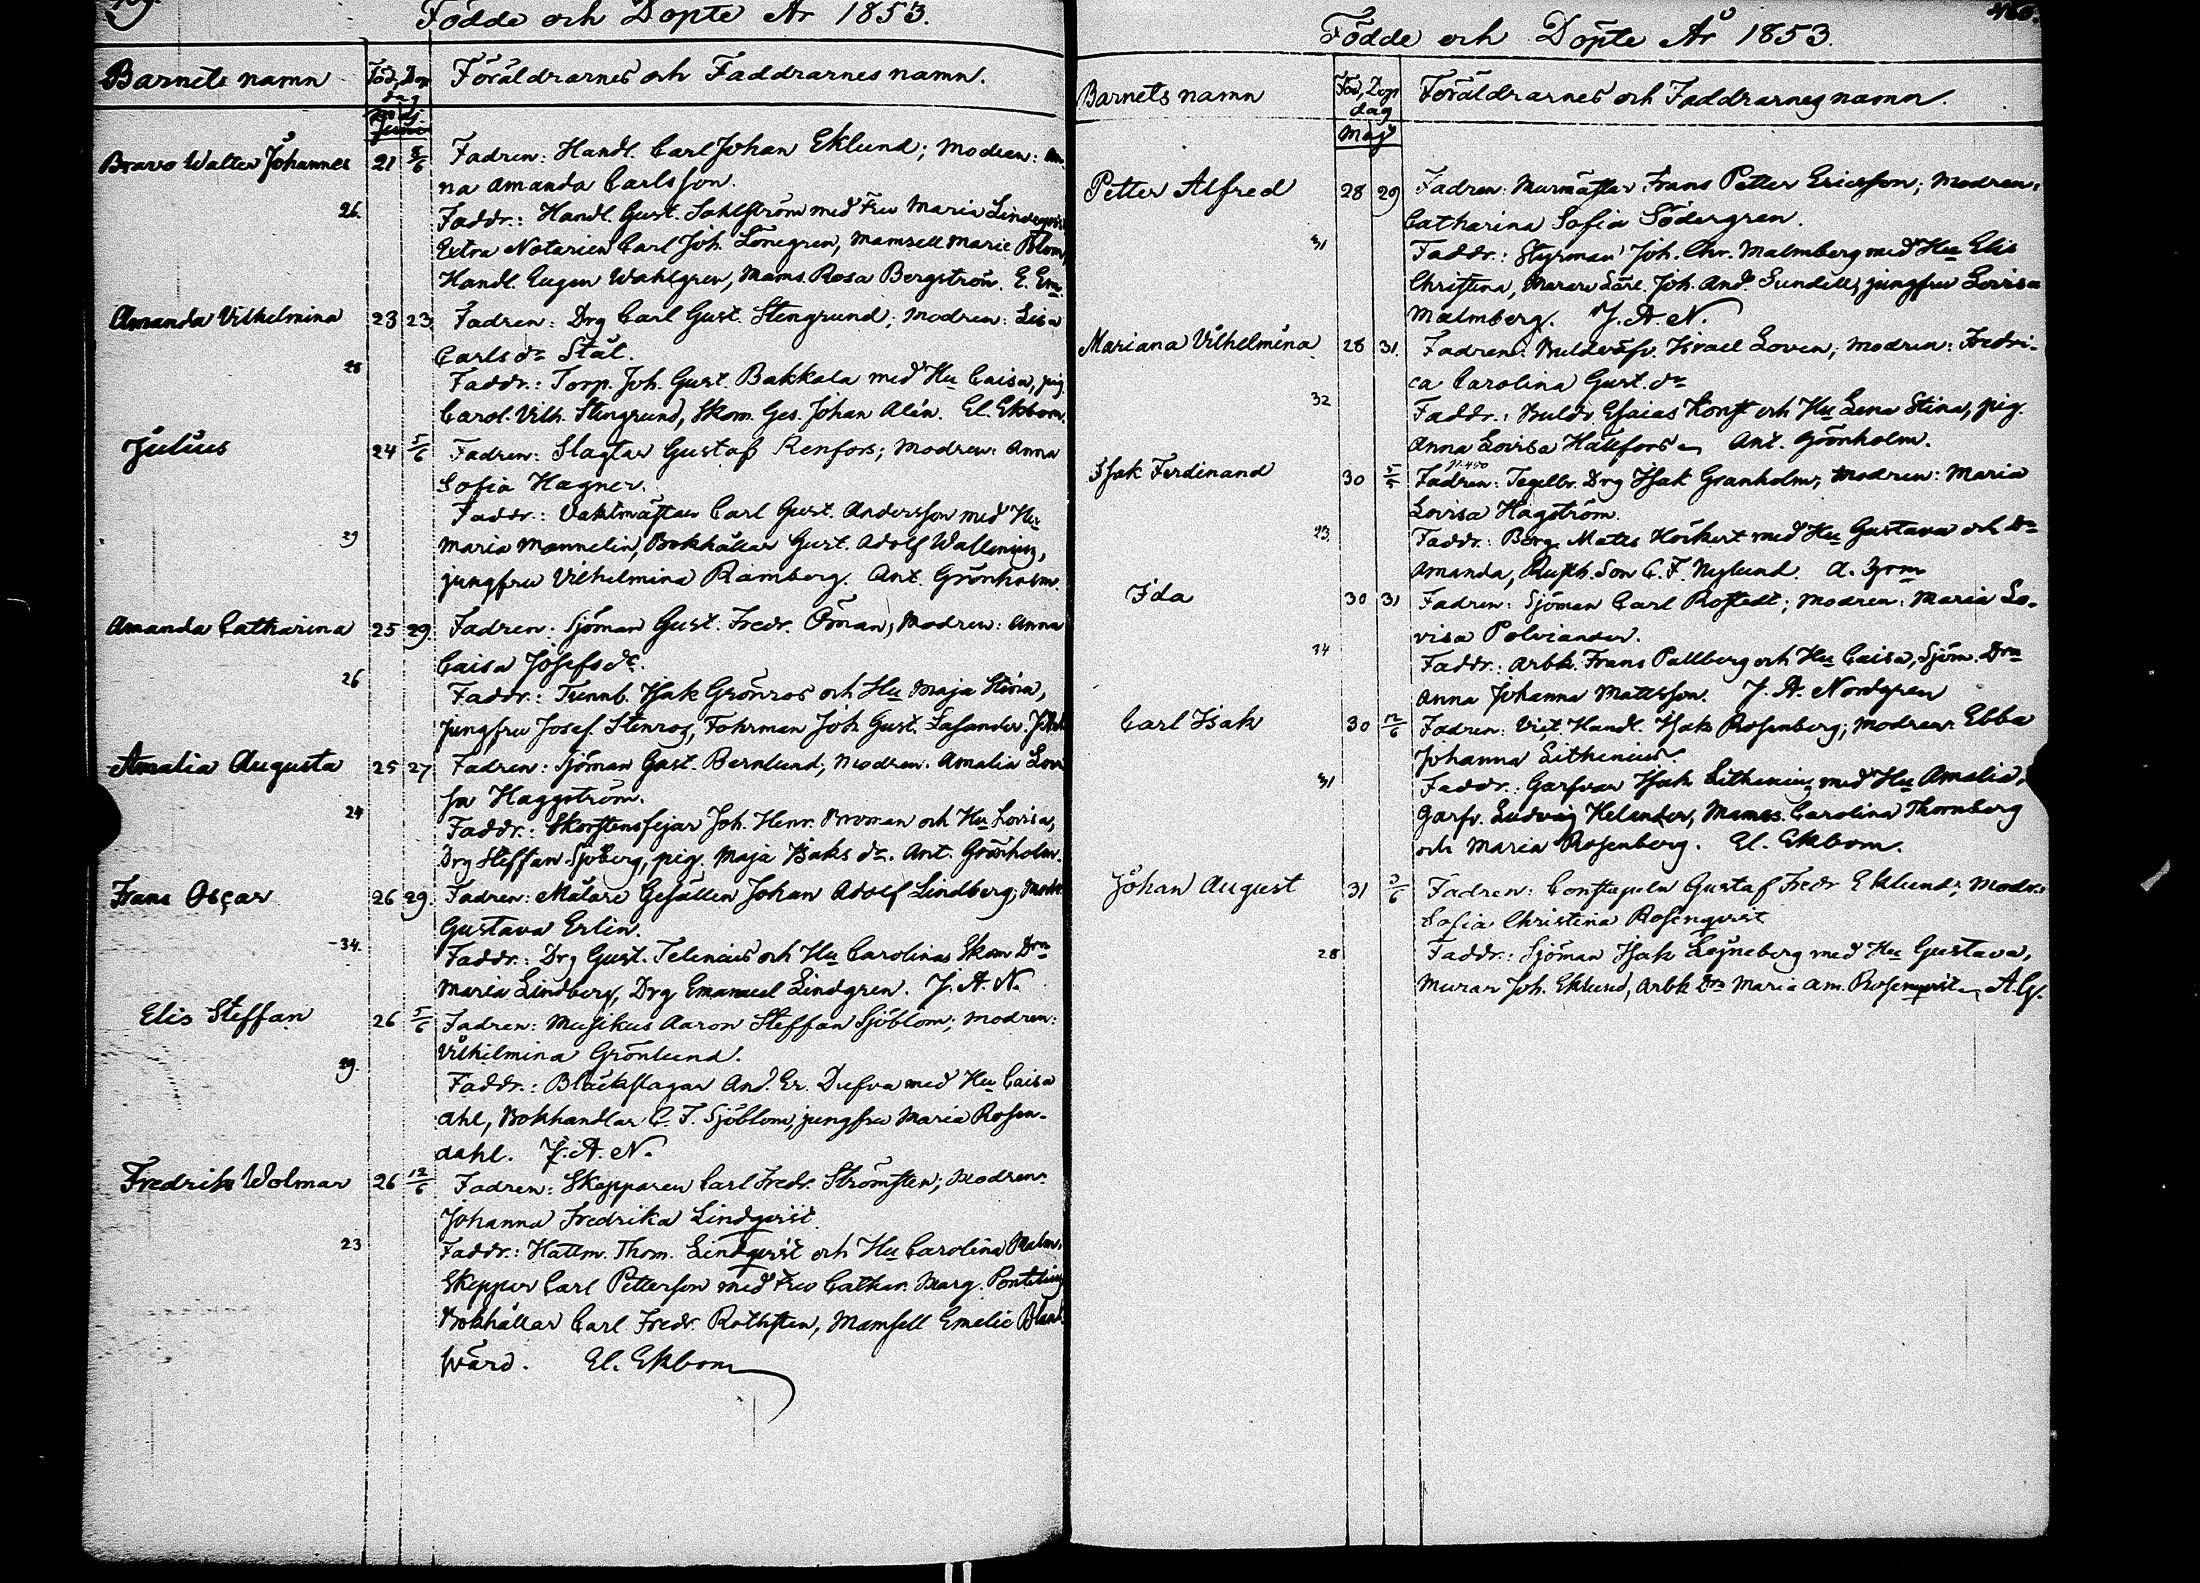 Födde och Döpte År 1853.
Barnets namn Föd, Dop dag Föräldrarnes och Faddrarnes namn.
Bravo Walter Johannes 21 8/6 Fadren: Handl. Carl Johan Eklund; Modren: An-
na Amanda Carlsson.
26. Faddr.: Handl. Gust. Sahlström med Fru Maria
Extra Notarien Carl Joh. Lönegren, Mamsell Marie Blom,
Handl. Eugen Wahlgren, Mams. Rosa Bergström. E. Em.
Amanda Vilhelmina 23 23 Fadren: Drg Carl Gust. Stengrund; Modren: Lisa
Carlsdr Stål.
28 Faddr.: Torp. Joh. Gust. Bakkala med Hu Caisa, pig
Carol. Vilh. Stengrund, Skom. Ges. Johan Alén. El. Ekbom.
Julius 24 5/6 Fadren: Slagtar Gustaf Renfors; Modren: Anna
Sofia Hagner.
Faddr.: Vaktmästar Carl Gust. Andersson med Hu
29 Maria Mannelin, Bokhållar Gust. Adolf Wallenius,
jungfru Vilhelmina Ramberg. Ant. Grönholm.
Amanda Catharina 25 29. Fadren: Sjöman Gust. Fredr. Öman; Modren: Anna
Caisa Josefsdr.
26 Faddr.: Tunnb. Isak Grönros och Hu Maja Stina,
jungfru Josef. Stenros, Fohrman Joh. Gust. Lasander.
Amalia Augusta 25 27 Fadren: Sjöman Gust. Bernlund; Modren: Amalia Lovi
sa Haggström.
24 Faddr.: Skorstensfejar Joh. Henr. Broman och Hu Lovisa,
Drg Steffan Sjöberg, pig. Maja Isaks dr. Ant. Grönholm.
Frans Oscar 26 29. Fadren: Målare Gesällen Johan Adolf Lindberg; Modr.
Gustava Erlin.
34. Faddr.: Drg Gust. Telenius och Hu Carolina, Skom Drn
Maria Lindberg, Drg Emanuel Lindgren. J. A. N.
Elis Steffan 26 5/6 Fadren: Musikus Aaron Steffan Sjöblom; Modren:
Vilhelmina Grönlund.
29. Faddr.: Bläckslagar And. Er. Dufva med Hu Caisa
Ahl, Bokhandlar C. F. Sjöblom, jungfru Maria Rosen-
dahl. J. A. N.
Fredrik Wolmar 26 12/6 Fadren: Skepparen Carl Fredr. Strömsten; Modren:
Johanna Fredrika Lindqvist.
23 Faddr.: Hattm. Thom. Lindqvist och Hu Carolina Malm,
Skeppar Carl Petterson med Fru Cathar. Marg.
Bokhållar Carl Fredr. Rothsten, Mamsell Emelie
wärd. El. Ekbom
Födde och Döpte År 1853.
Barnets namn Föd, Dop dag Föräldrarnes och Faddrarnes namn.
Maj
Petter Alfred 28 29 Fadren: Murmästar Frans Petter Ericsson; Modren:
Catharina Sofia Södergren.
31 Faddr.: Styrman Joh. Chr. Malmberg med Hu Elis
Christina, Murare Lärl. Joh. And. Sundell, jungfru Lovisa
Malmberg. J. A. N.
Mariana Vilhelmina 28 31. Fadren: Israel Loven; Modren: Fredri-
ca Carolina Gust. dr
32 Faddr.: Esaias Konst och Hu Lena Stina, pig.
Anna Lovisa Hällfors Ant. Grönholm.
Isak Ferdinand 30 5/5 Fadren: Tegelbr. Drg Isak Granholm; Modren: Maria
Lovisa Hagström.
23. Faddr.: Borg. Matts Höckert med Hu Gustava och Dr
Amanda, C. F. Nylund.
Ida 30 31 Fadren: Sjöman Carl Rostedt; Modren: Maria Lo-
visa Polviander.
34 Faddr.: Arbk. Frans Pallberg och Hu Caisa, Sjöm. Drn
Anna Johanna Mattsson. J. A. Nordgren
Carl Isak 30 12/6 Fadren: Vict. Handl. Isak Rosenberg; Modren: Ebba
Johanna Lithenius.
31 Faddr.: Garfvar Isak Lithenius med Hu Amalia,
Garfv. Ludvig Helander, Mamss. Carolina Thornberg
och Maria Rosenberg. El. Ekbom.
Johan August 31 3/6 Fadren: Constapeln Gustaf Fredr Eklund; Modr.:
Sofia Christina Rosenqvist
28 Faddr.: Sjöman Isak Legneberg med Hu Gustava,
Murar Joh. Eklund, Arbk Drn Maria Am. Rosenqvist A. G.